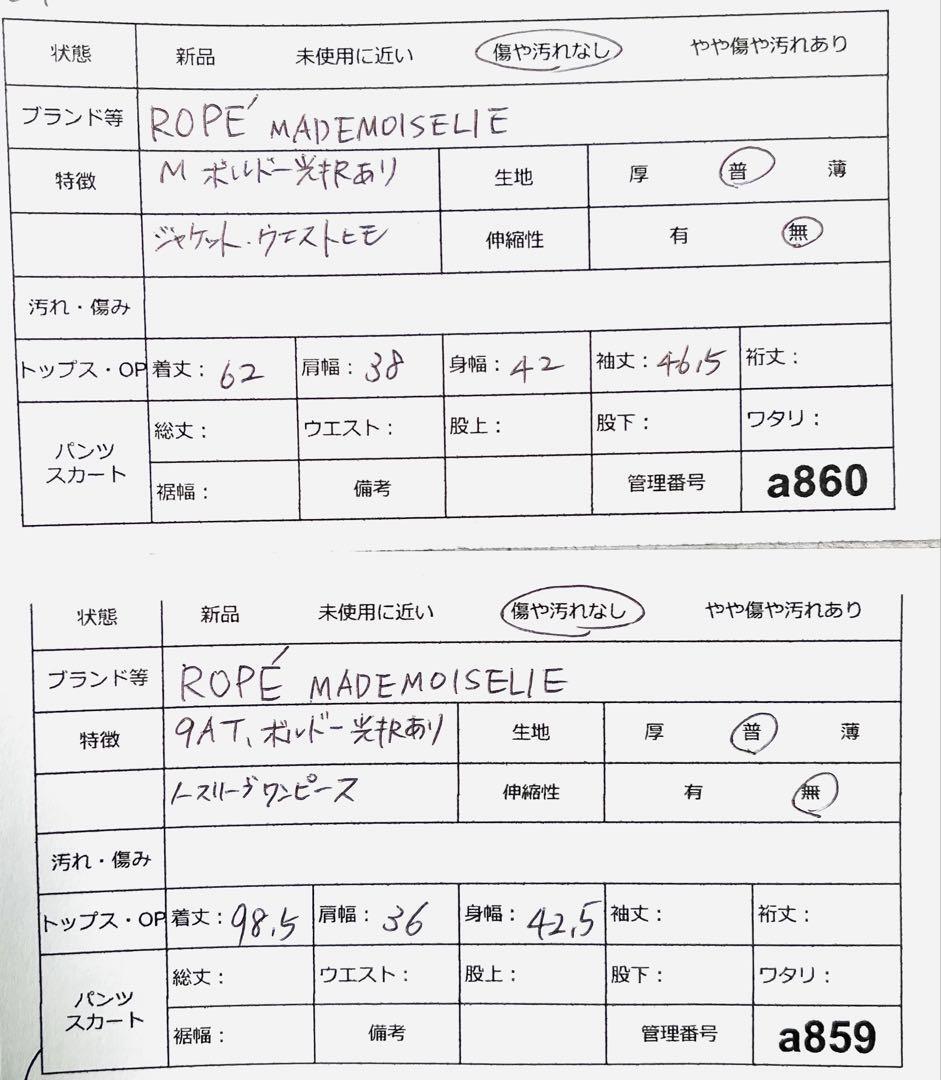 状態 新品 未使用に近い 傷や汚れなし やや傷や汚れあり
ブランド等 ROPÉ MADEMOISELIE
特徴 M ボルドー光沢あり 生地 厚 普 薄
ジャケット・ウエストヒモ 伸縮性 有 無
汚れ・傷み
トップス・OP 着丈：62 肩幅：38 身幅：42 袖丈：46,5 裄丈：
パンツ スカート 総丈： ウエスト： 股上： 股下： ワタリ：
裾幅： 備考 管理番号 a860
状態 新品 未使用に近い 傷や汚れなし やや傷や汚れあり
ブランド等 ROPÉ MADEMOISELIE
特徴 9AT、ボルドー光沢あり 生地 厚 普 薄
ノースリーブワンピース 伸縮性 有 無
汚れ・傷み
トップス・OP 着丈：98.5 肩幅：36 身幅：42.5 袖丈： 裄丈：
パンツ スカート 総丈： ウエスト： 股上： 股下： ワタリ：
裾幅： 備考 管理番号 a859